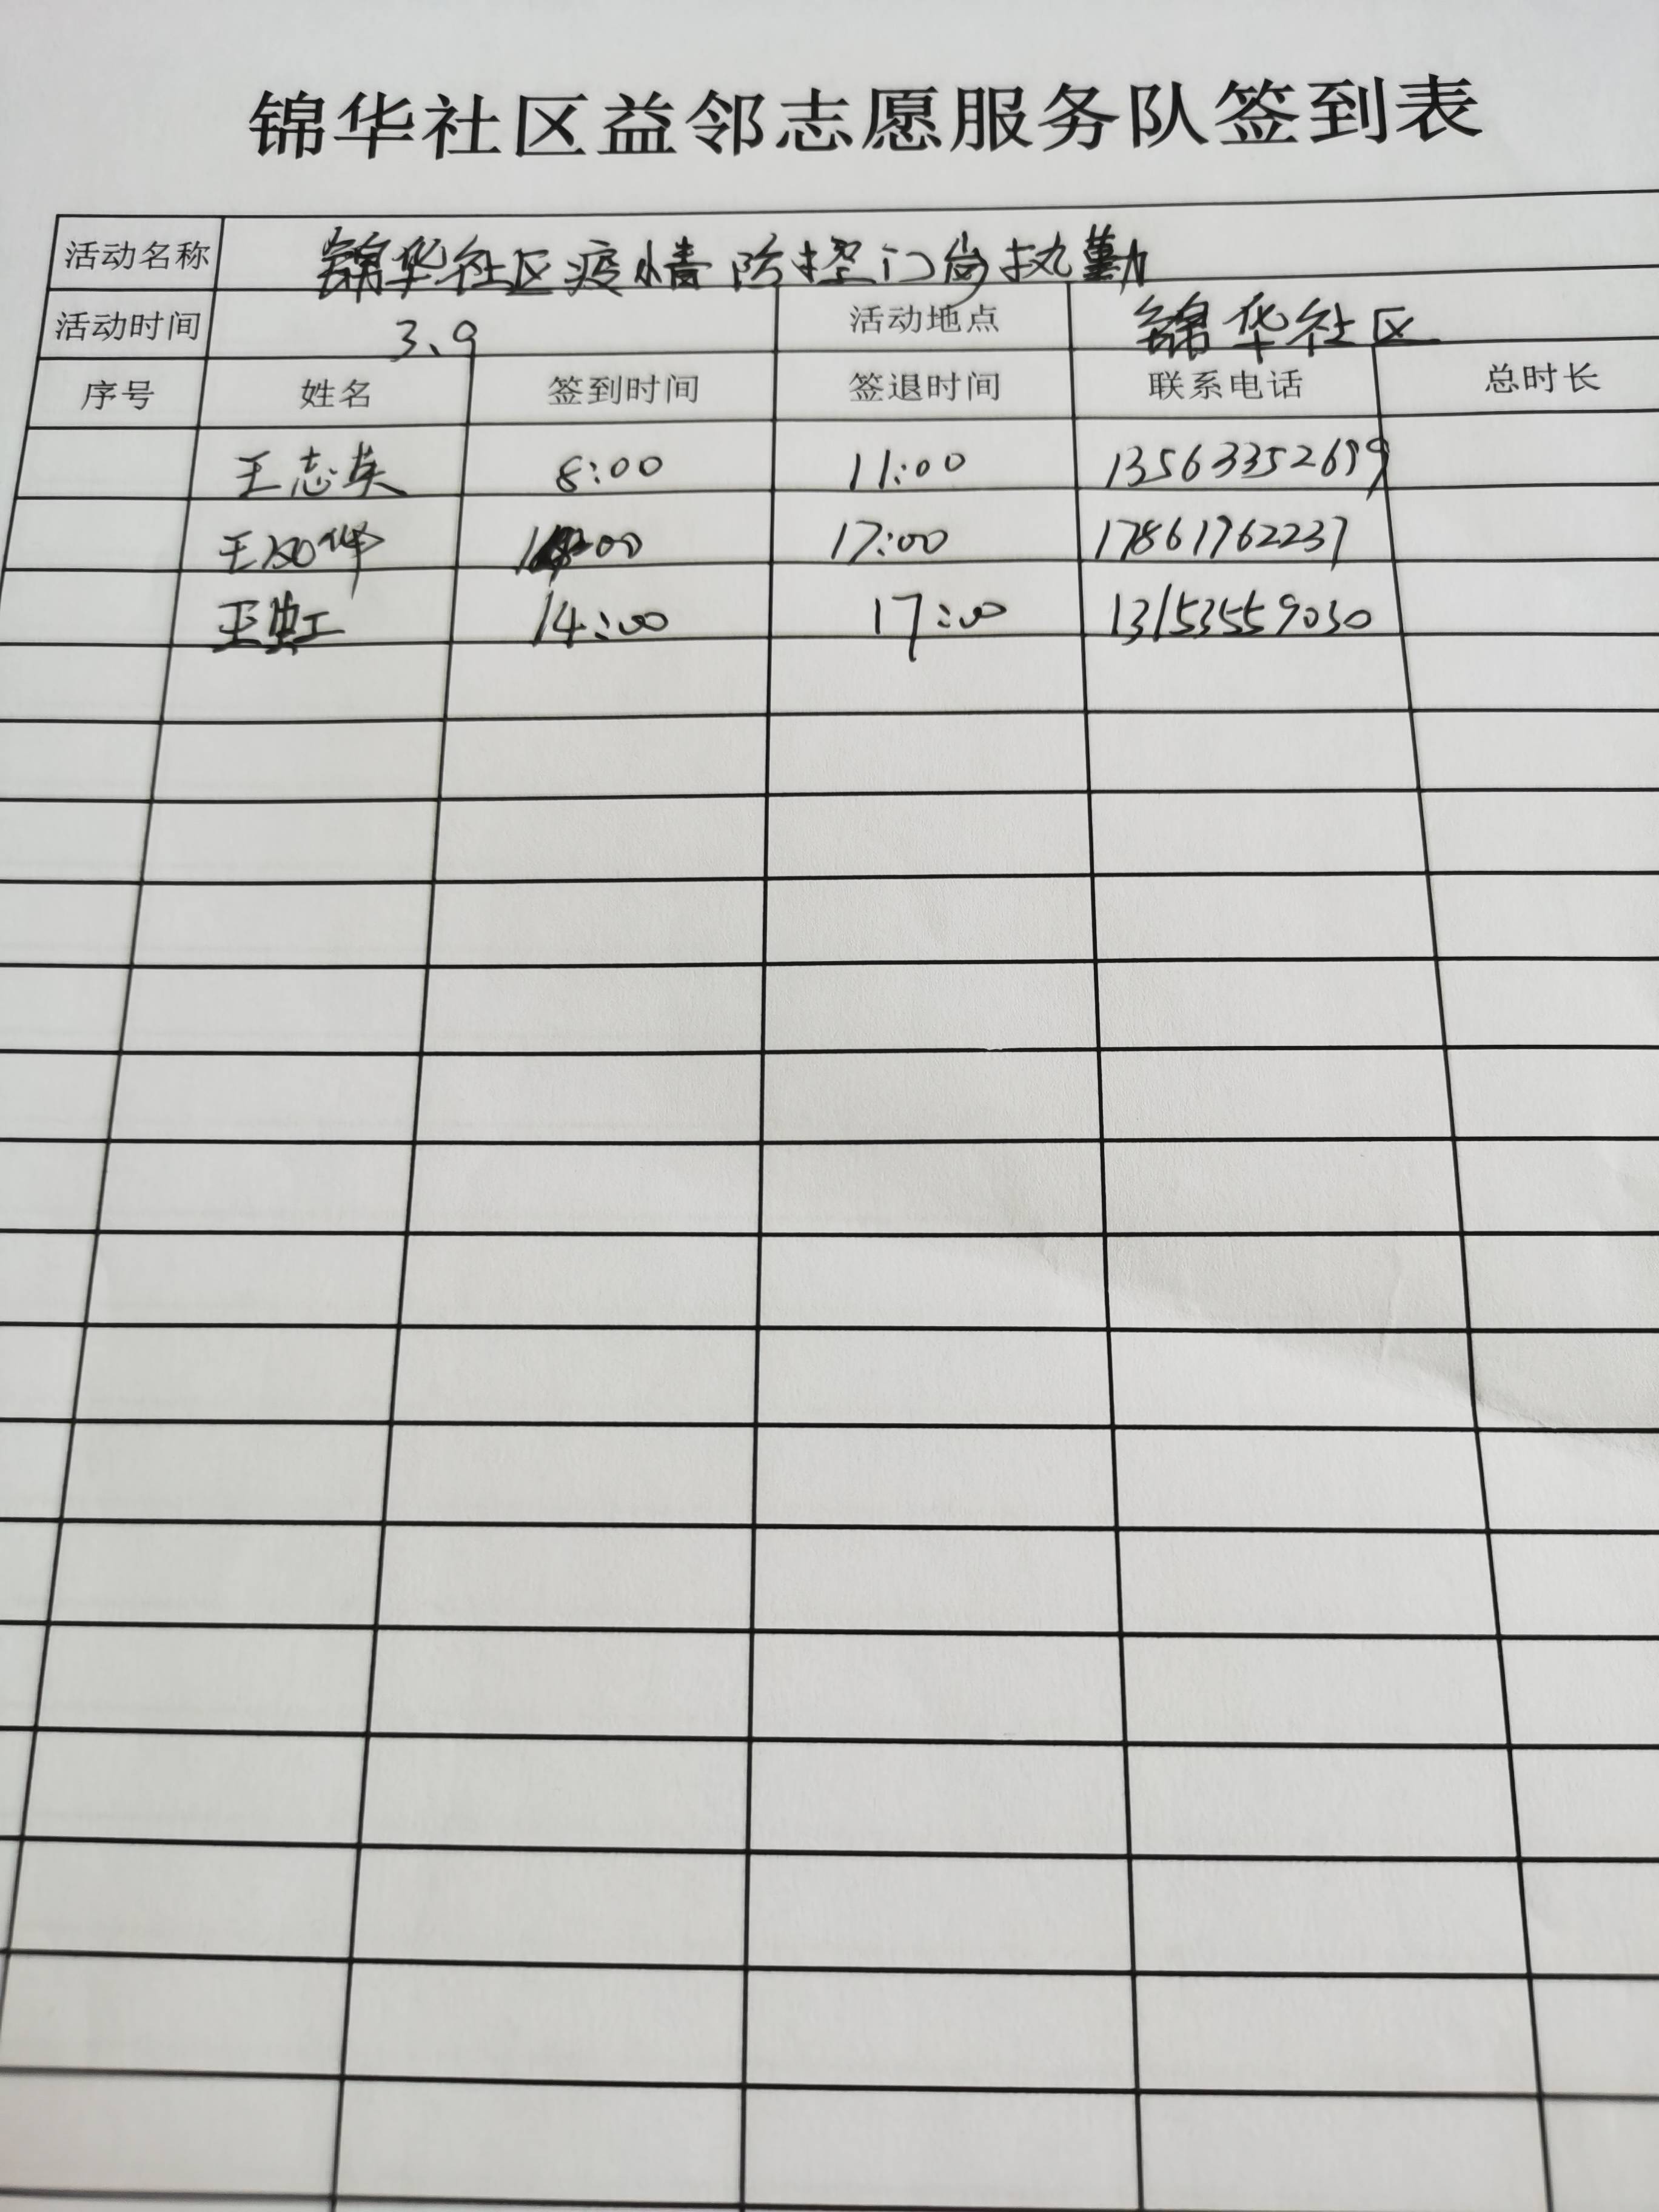 锦华社区益邻志愿服务队签到表
活动名称 锦华社区疫情防控门岗执勤
活动时间 3、9 活动地点 锦华社区
序号 姓名 签到时间 签退时间 联系电话 总时长
王志英 8:00 11:00 13563352699
王 17:00 17861762237
王虹 14:00 17:00 13153559030